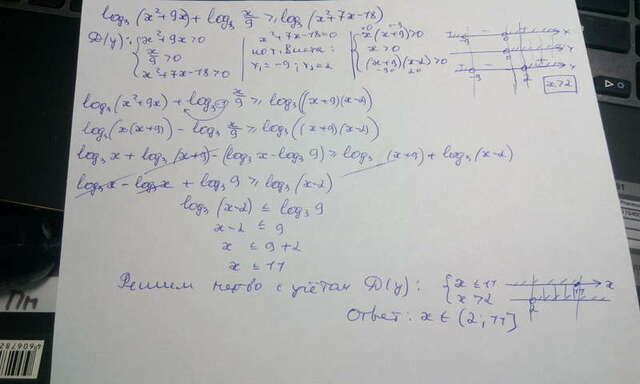 log₃(x²+9x) + log₃ x/9 ≥ log₃(x²+7x-18)
D(y): { x²+9x>0 | x²+7x-18=0 | { x(x+9)>0
x/9 >0 | по т. Виета: | x>0
x²+7x-18>0 | x₁=-9; x₂=2 | (x+9)(x-2)>0
x>2
log₃(x²+9x) + log x/9 ≥ log₃((x+9)(x-2))
log₃(x(x+9)) - log₃ x/9 ≥ log₃((x+9)(x-2))
log₃x + log₃(x+9) - (log₃x - log₃9) ≥ log₃(x+9) + log₃(x-2)
log₃x - log₃x + log₃9 ≥ log₃(x-2)
log₃(x-2) ≤ log₃9
x-2 ≤ 9
x ≤ 9+2
x ≤ 11
Решим нер-во с учётом D(y): { x ≤ 11
x > 2
Ответ: x ∈ (2; 11]
4606782